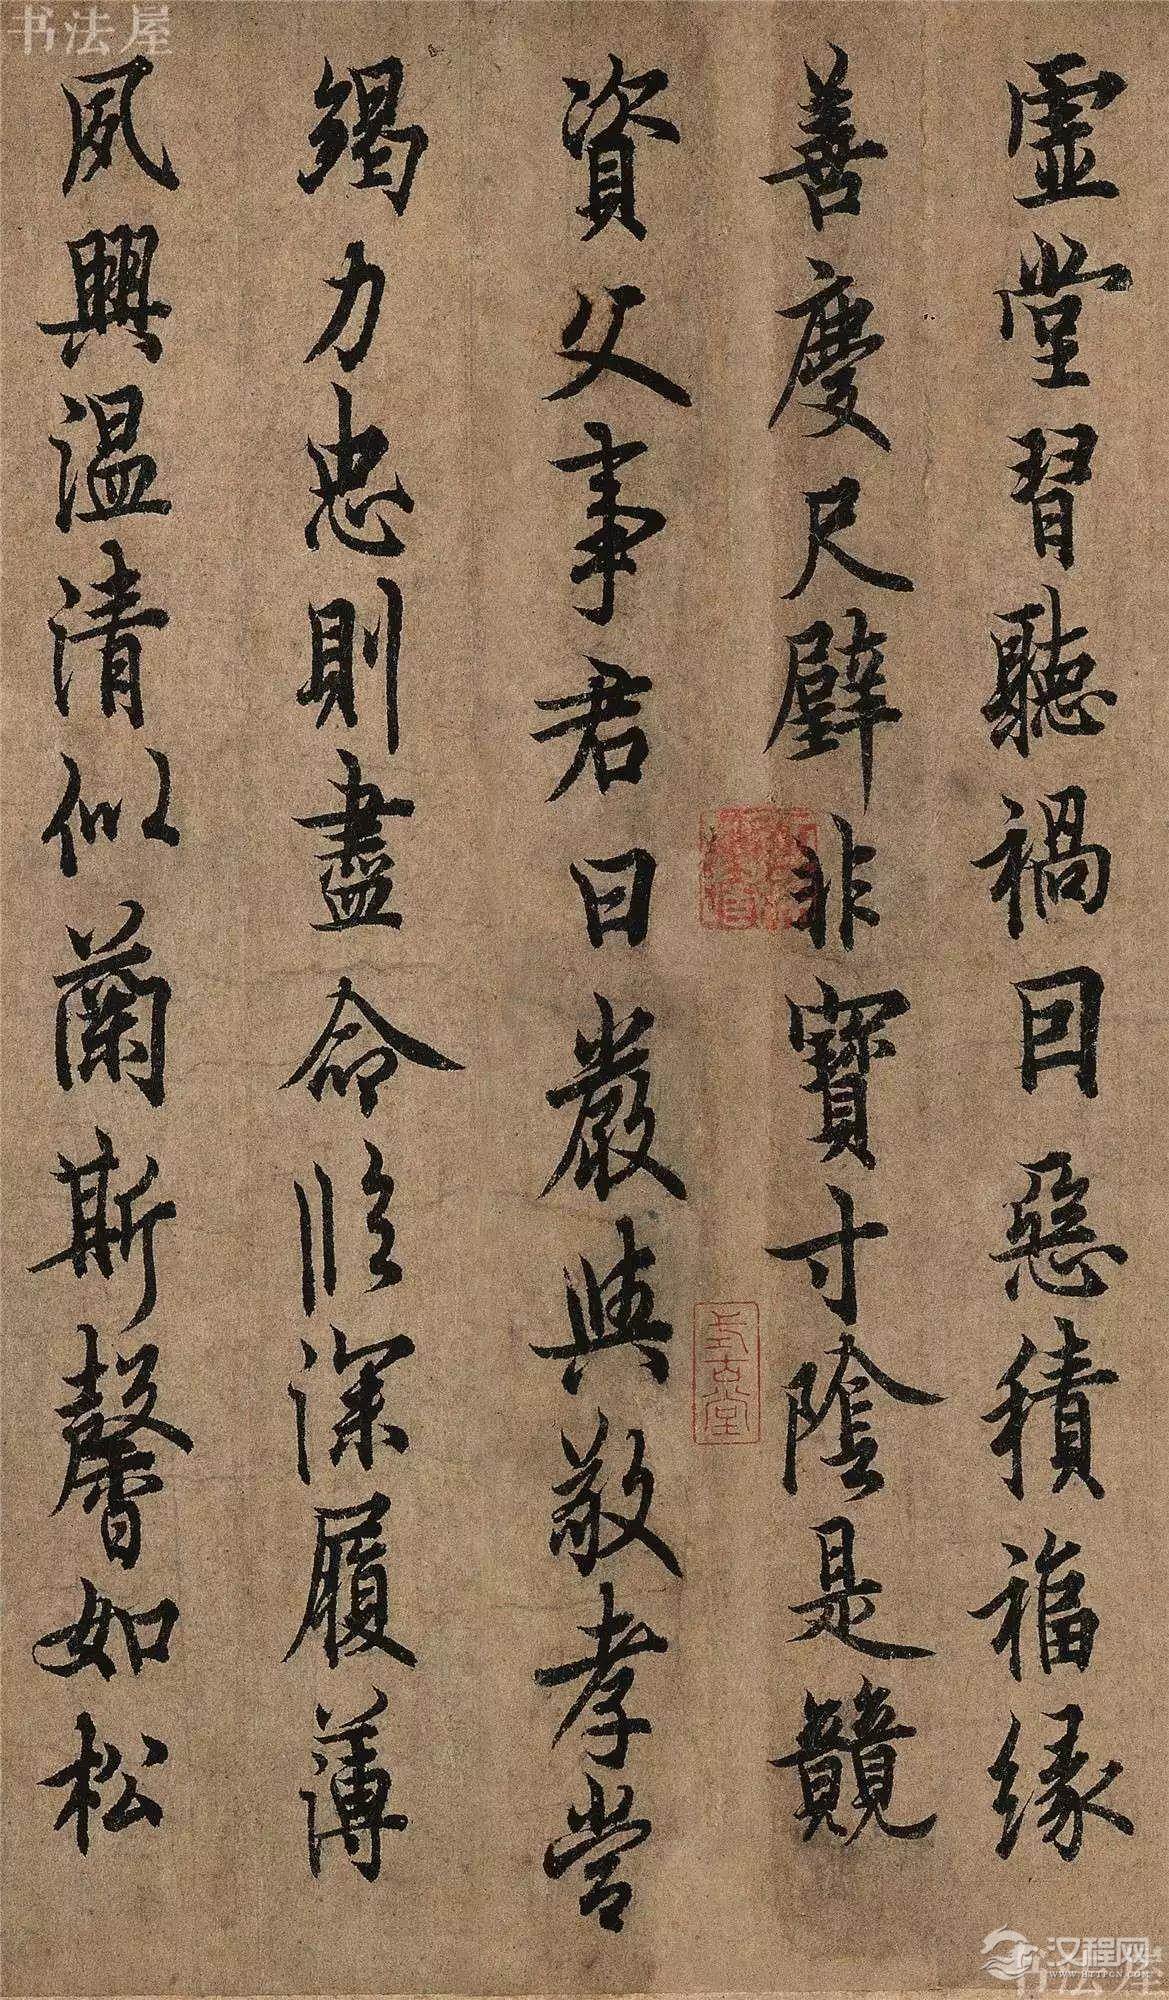 虛堂習聽禍因惡積福緣
善慶尺璧非寶寸陰是競
資父事君曰嚴與敬孝當
竭力忠則盡命臨深履薄
夙興温清似蘭斯馨如松
式古堂
书法屋
汉程网
WWW.HTTPCN.COM
书法屋